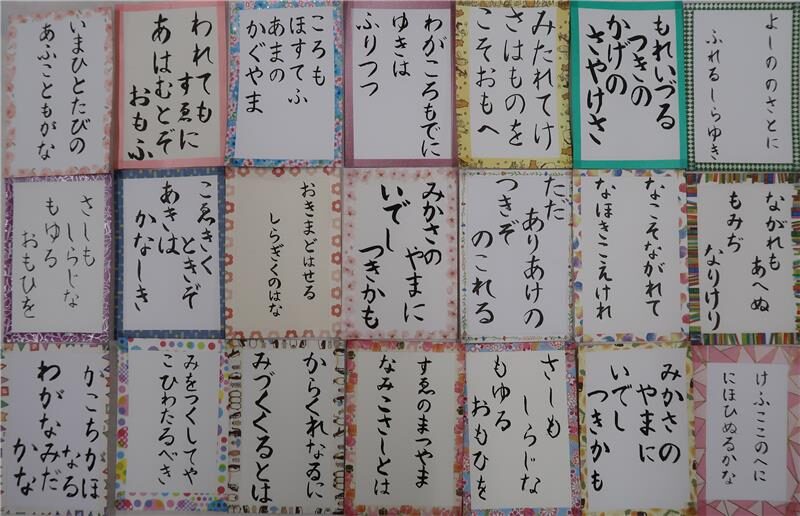 よしののさとに
ふれるしらゆき
もれいづる
つきの
かげの
さやけさ
みたれてけ
さはものを
こそおもへ
わがころもでに
ゆきは
ふりつつ
ころも
ほすてふ
あまの
かぐやま
われても
すゑに
あはむとぞ
おもふ
いまひとたびの
あふこともがな
ながれも
あへぬ
もみぢ
なりけり
なこそながれて
なほきこえけれ
ただ
ありあけの
つきぞ
のこれる
みかさの
やまに
いでし
つきかも
おきまどはせる
しらぎくのはな
こゑきく
ときぞ
あきは
かなしき
さしも
しらじな
もゆる
おもひを
けふここのへに
にほひぬるかな
みかさの
やまに
いでし
つきかも
さしも
しらじな
もゆる
おもひを
すゑのまつやま
なみこさしとは
からくれなゐに
みづくくるとは
みをつくしてや
こひわたるべき
かこちかほ
なる
わがなみだ
かな